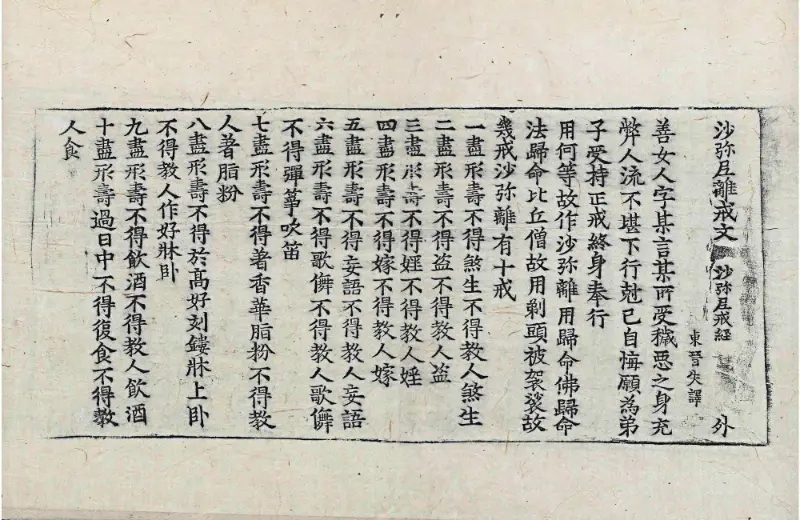 沙弥尼離戒文 沙弥尼戒経 外
東晉失譯
善女人字某言某所受穢惡之身充
弊人流不堪下行尅已自悔願為弟
子受持正戒終身奉行
用何等故作沙弥離用歸命佛歸命
法歸命比丘僧故用剃頭被袈裟故
幾戒沙弥離有十戒
一盡形壽不得煞生不得教人煞生
二盡形壽不得盜不得教人盜
三盡形壽不得婬不得教人婬
四盡形壽不得嫁不得教人嫁
五盡形壽不得妄語不得教人妄語
六盡形壽不得歌儛不得教人歌儛
不得彈箏吹笛
七盡形壽不得著香華脂粉不得教
人著脂粉
八盡形壽不得於高好刻鏤牀上卧
不得教人作好牀卧
九盡形壽不得飲酒不得教人飲酒
十盡形壽過日中不得復食不得教
人食